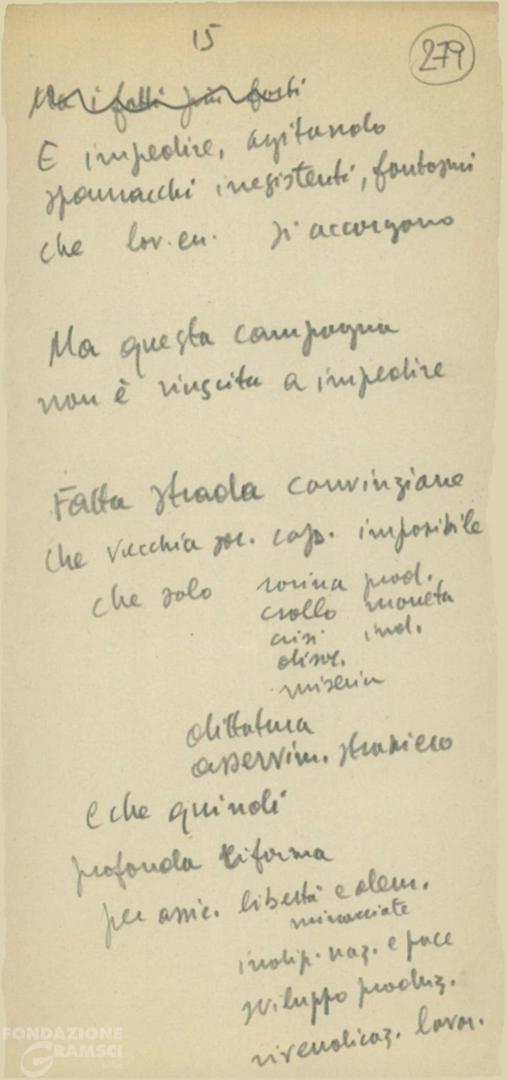 15
279
Ma i fatti più forti
E impedire, agitando
spauracchi inesistenti, fantasmi
che lor. en. si accorgono
Ma questa campagna
non è riuscita a impedire
Fatta strada convinzione
che vecchia soc. cap. impossibile
che solo rovina prod.
crollo moneta
crisi ind.
disoc.
miseria
dittatura
asservim. straniero
E che quindi
profonda riforma
per assic. libertà e dem.
minacciate
indip. naz. e pace
sviluppo produz.
rivendicaz. lavor.
FONDAZIONE
GRAMSCI